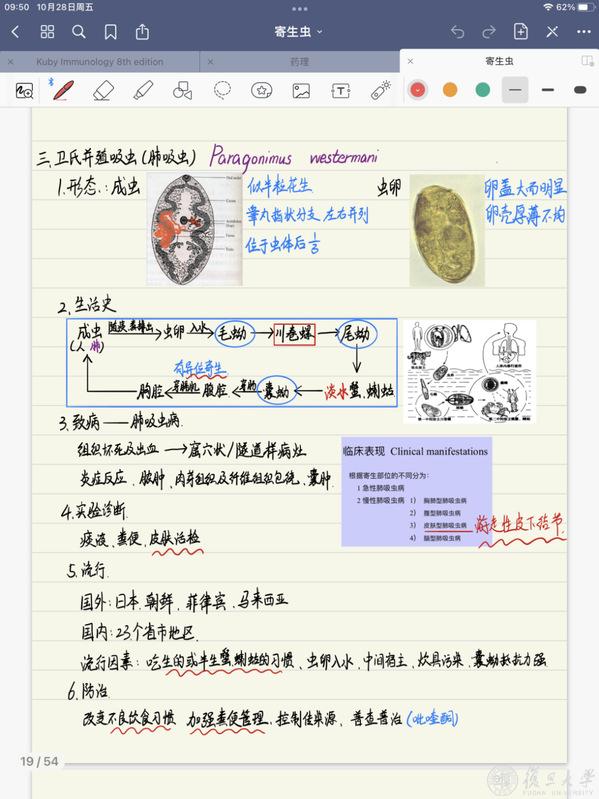 09:50 10月28日周五
62%
寄生虫
Kuby Immunology 8th edition
药理
寄生虫
三.卫氏并殖吸虫(肺吸虫) Paragonimus westermani
1.形态: 成虫
似半粒花生
睾丸指状分支 左右并列
位于虫体后1/3
虫卵
卵盖大而明显
卵壳厚薄不均
2.生活史
成虫 随痰粪排出 虫卵 入水 毛蚴 川卷螺 尾蚴
(人肺)
有异位寄生
胸腔 穿膈肌 腹腔 囊蚴 淡水蟹、蝲蛄
3.致病——肺吸虫病
组织坏死及出血→窟穴状/隧道样病灶
炎症反应、脓肿、肉芽组织及纤维组织包绕、囊肿
临床表现 Clinical manifestations
根据寄生部位的不同分为:
1 急性肺吸虫病
2 慢性肺吸虫病 1) 胸肺型肺吸虫病
2) 腹型肺吸虫病
3) 皮肤型肺吸虫病 游走性皮下结节
4) 脑型肺吸虫病
4.实验诊断
痰液、粪便、皮肤活检
5.流行
国外:日本、朝鲜、菲律宾、马来西亚
国内:23个省市地区
流行因素:吃生的或半生蟹、蝲蛄的习惯、虫卵入水、中间宿主、炊具污染、囊蚴抵抗力强
6.防治
改变不良饮食习惯 加强粪便管理、控制传染源、普查普治(吡喹酮)
19 / 54
復旦大學
FUDAN UNIVERSITY